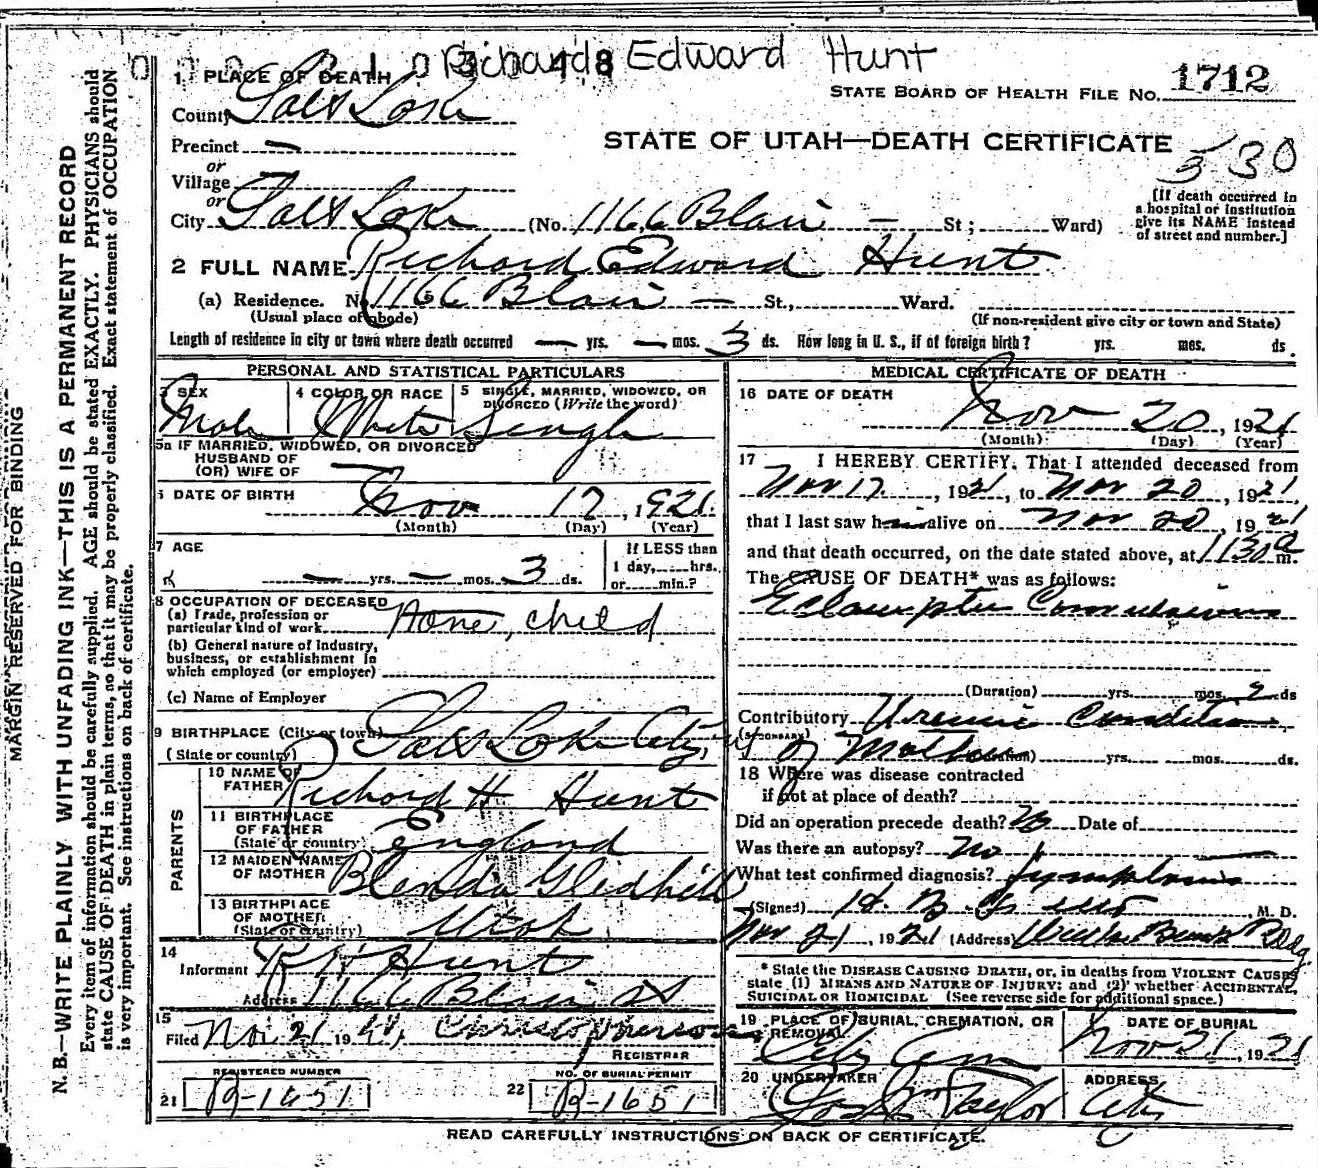 Richard Edward Hunt
1 PLACE OF DEATH
STATE BOARD OF HEALTH FILE No. 1712
County Salt Lake
STATE OF UTAH—DEATH CERTIFICATE
530
Precinct —
or
Village
or
City Salt Lake (No. 1166 Blair — St; Ward)
[If death occurred in
a hospital or institution
give its NAME instead
of street and number.]
2 FULL NAME Richard Edward Hunt
(a) Residence. No. 1166 Blair — St., Ward.
(Usual place of abode) (If non-resident give city or town and State)
Length of residence in city or town where death occurred — yrs. — mos. 3 ds. How long in U. S., if of foreign birth? yrs. mos. ds.
PERSONAL AND STATISTICAL PARTICULARS
3 SEX 4 COLOR OR RACE 5 SINGLE, MARRIED, WIDOWED, OR
DIVORCED (Write the word)
Male White Single
5a IF MARRIED, WIDOWED, OR DIVORCED
HUSBAND OF
(OR) WIFE OF
6 DATE OF BIRTH Nov 17, 1921
(Month) (Day) (Year)
7 AGE If LESS than
1 day, hrs.
— yrs. — mos. 3 ds. or min.?
8 OCCUPATION OF DECEASED
(a) Trade, profession or
particular kind of work None, child
(b) General nature of industry,
business, or establishment in
which employed (or employer)
(c) Name of Employer
9 BIRTHPLACE (City or town) Salt Lake City,
(State or country)
PARENTS
10 NAME OF
FATHER Richard H Hunt
11 BIRTHPLACE
OF FATHER
(State or country) England
12 MAIDEN NAME
OF MOTHER Blenda Gledhill
13 BIRTHPLACE
OF MOTHER
(State or country) Utah
14
Informant R H Hunt
Address 1166 Blair St
15
Filed Nov 21 19
REGISTRAR
REGISTERED NUMBER NO. OF BURIAL PERMIT
21 B-1651 22 B-1651
MEDICAL CERTIFICATE OF DEATH
16 DATE OF DEATH
Nov 20, 1921
(Month) (Day) (Year)
17 I HEREBY CERTIFY, That I attended deceased from
Nov 17, 1921, to Nov 20, 1921,
that I last saw h alive on Nov 20, 1921
and that death occurred, on the date stated above, at 1130 a m.
The CAUSE OF DEATH* was as follows:
Eclamptic Convulsions
(Duration) yrs. mos. 2 ds
Contributory Uremic Condition
(SECONDARY)
of Mother (Duration) yrs. mos. ds.
18 Where was disease contracted
if not at place of death?
Did an operation precede death? No Date of
Was there an autopsy? No
What test confirmed diagnosis? Symptoms
(Signed) M. D.
Nov 21, 1921 (Address) Bldg.
* State the DISEASE CAUSING DEATH, or, in deaths from VIOLENT CAUSES
state (1) MEANS AND NATURE OF INJURY; and (2) whether ACCIDENTAL,
SUICIDAL OR HOMICIDAL (See reverse side for additional space.)
19 PLACE OF BURIAL, CREMATION, OR
REMOVAL
City Cem
DATE OF BURIAL
Nov 21, 1921
20 UNDERTAKER ADDRESS
Jos Wm Taylor City
READ CAREFULLY INSTRUCTIONS ON BACK OF CERTIFICATE.
MARGIN RESERVED FOR BINDING
N. B.—WRITE PLAINLY WITH UNFADING INK—THIS IS A PERMANENT RECORD
Every item of information should be carefully supplied. AGE should be stated EXACTLY. PHYSICIANS should
state CAUSE OF DEATH in plain terms, so that it may be properly classified. Exact statement of OCCUPATION
is very important. See instructions on back of certificate.